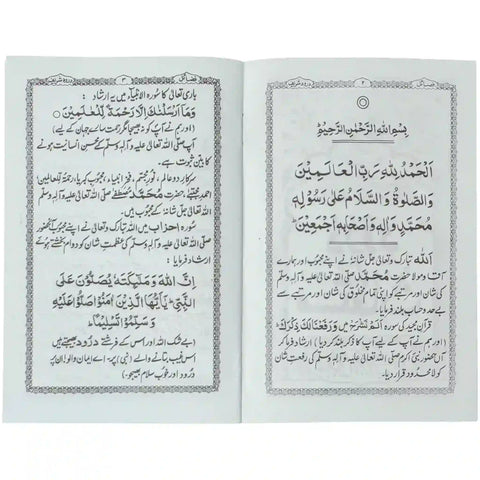 فضائل ۲ درود شریف
بِسْمِ اللهِ الرَّحْمٰنِ الرَّحِيْمِ
اَلْحَمْدُ لِلّٰهِ رَبِّ الْعَالَمِيْنَ
وَالصَّلٰوةُ وَالسَّلَامُ عَلٰى رَسُوْلِهٖ
مُحَمَّدٍ وَاٰلِهٖ وَاَصْحَابِهٖ اَجْمَعِيْنَ ؕ
اللہ تبارک وتعالیٰ جل شانہٗ نے اپنے محبوب اور ہمارے
آقا و مولا حضرت محمد صلی اللہ تعالیٰ علیہ وآلہ وسلم
کی شان اور مرتبے کو اپنی تمام مخلوق کی شان اور مرتبے سے
بے حد و حساب بلند فرمایا۔
قرآن مجید کی سورہ اَلَمْ نَشْرَحْ میں وَرَفَعْنَا لَكَ ذِكْرَكَ ؕ
(اور ہم نے آپ کے لیے آپ کا ذکر بلند کر دیا) ارشاد فرما کر
آں حضور نبی اکرم صلی اللہ تعالیٰ علیہ وآلہ وسلم کی رفعتِ شان
کو لامحدود قرار دیا۔
فضائل ۳ درود شریف
باری تعالیٰ کا سورہ الانبیاء میں یہ ارشاد :
وَمَا اَرْسَلْنٰكَ اِلَّا رَحْمَةً لِّلْعَالَمِيْنَ ○
(اور ہم نے آپ کو نہ بھیجا مگر رحمت سارے جہان کے لیے)
آپ صلی اللہ تعالیٰ علیہ وآلہ وسلم کے محسنِ انسانیت ہونے
کا بین ثبوت ہے۔
سرکار دو عالم، نور مجسم، فخر انبیاء، محبوب کبریا، رحمۃ للعالمین
احمد مجتبیٰ حضرت محمد مصطفےٰ صلی اللہ تعالیٰ علیہ وآلہ وسلم
اللہ تعالیٰ جل شانہٗ کے محبوب ہیں۔
سورہ احزاب میں اللہ تبارک وتعالیٰ نے اپنے محبوب آنحضور
صلی اللہ تعالیٰ علیہ وآلہ وسلم کی عظمتِ شان کو یوں
ارشاد فرمایا :
اِنَّ اللهَ وَمَلٰٓئِكَتَهٗ يُصَلُّوْنَ عَلَى
النَّبِيِّ ؕ يٰۤاَيُّهَا الَّذِيْنَ اٰمَنُوْا صَلُّوْا عَلَيْهِ
وَسَلِّمُوْا تَسْلِيْمًا ○
(بے شک اللہ اور اس کے فرشتے درود بھیجتے ہیں
اس غیب بتانے والے (نبی) پر، اے ایمان والو! ان پر
درود اور خوب سلام بھیجو۔)